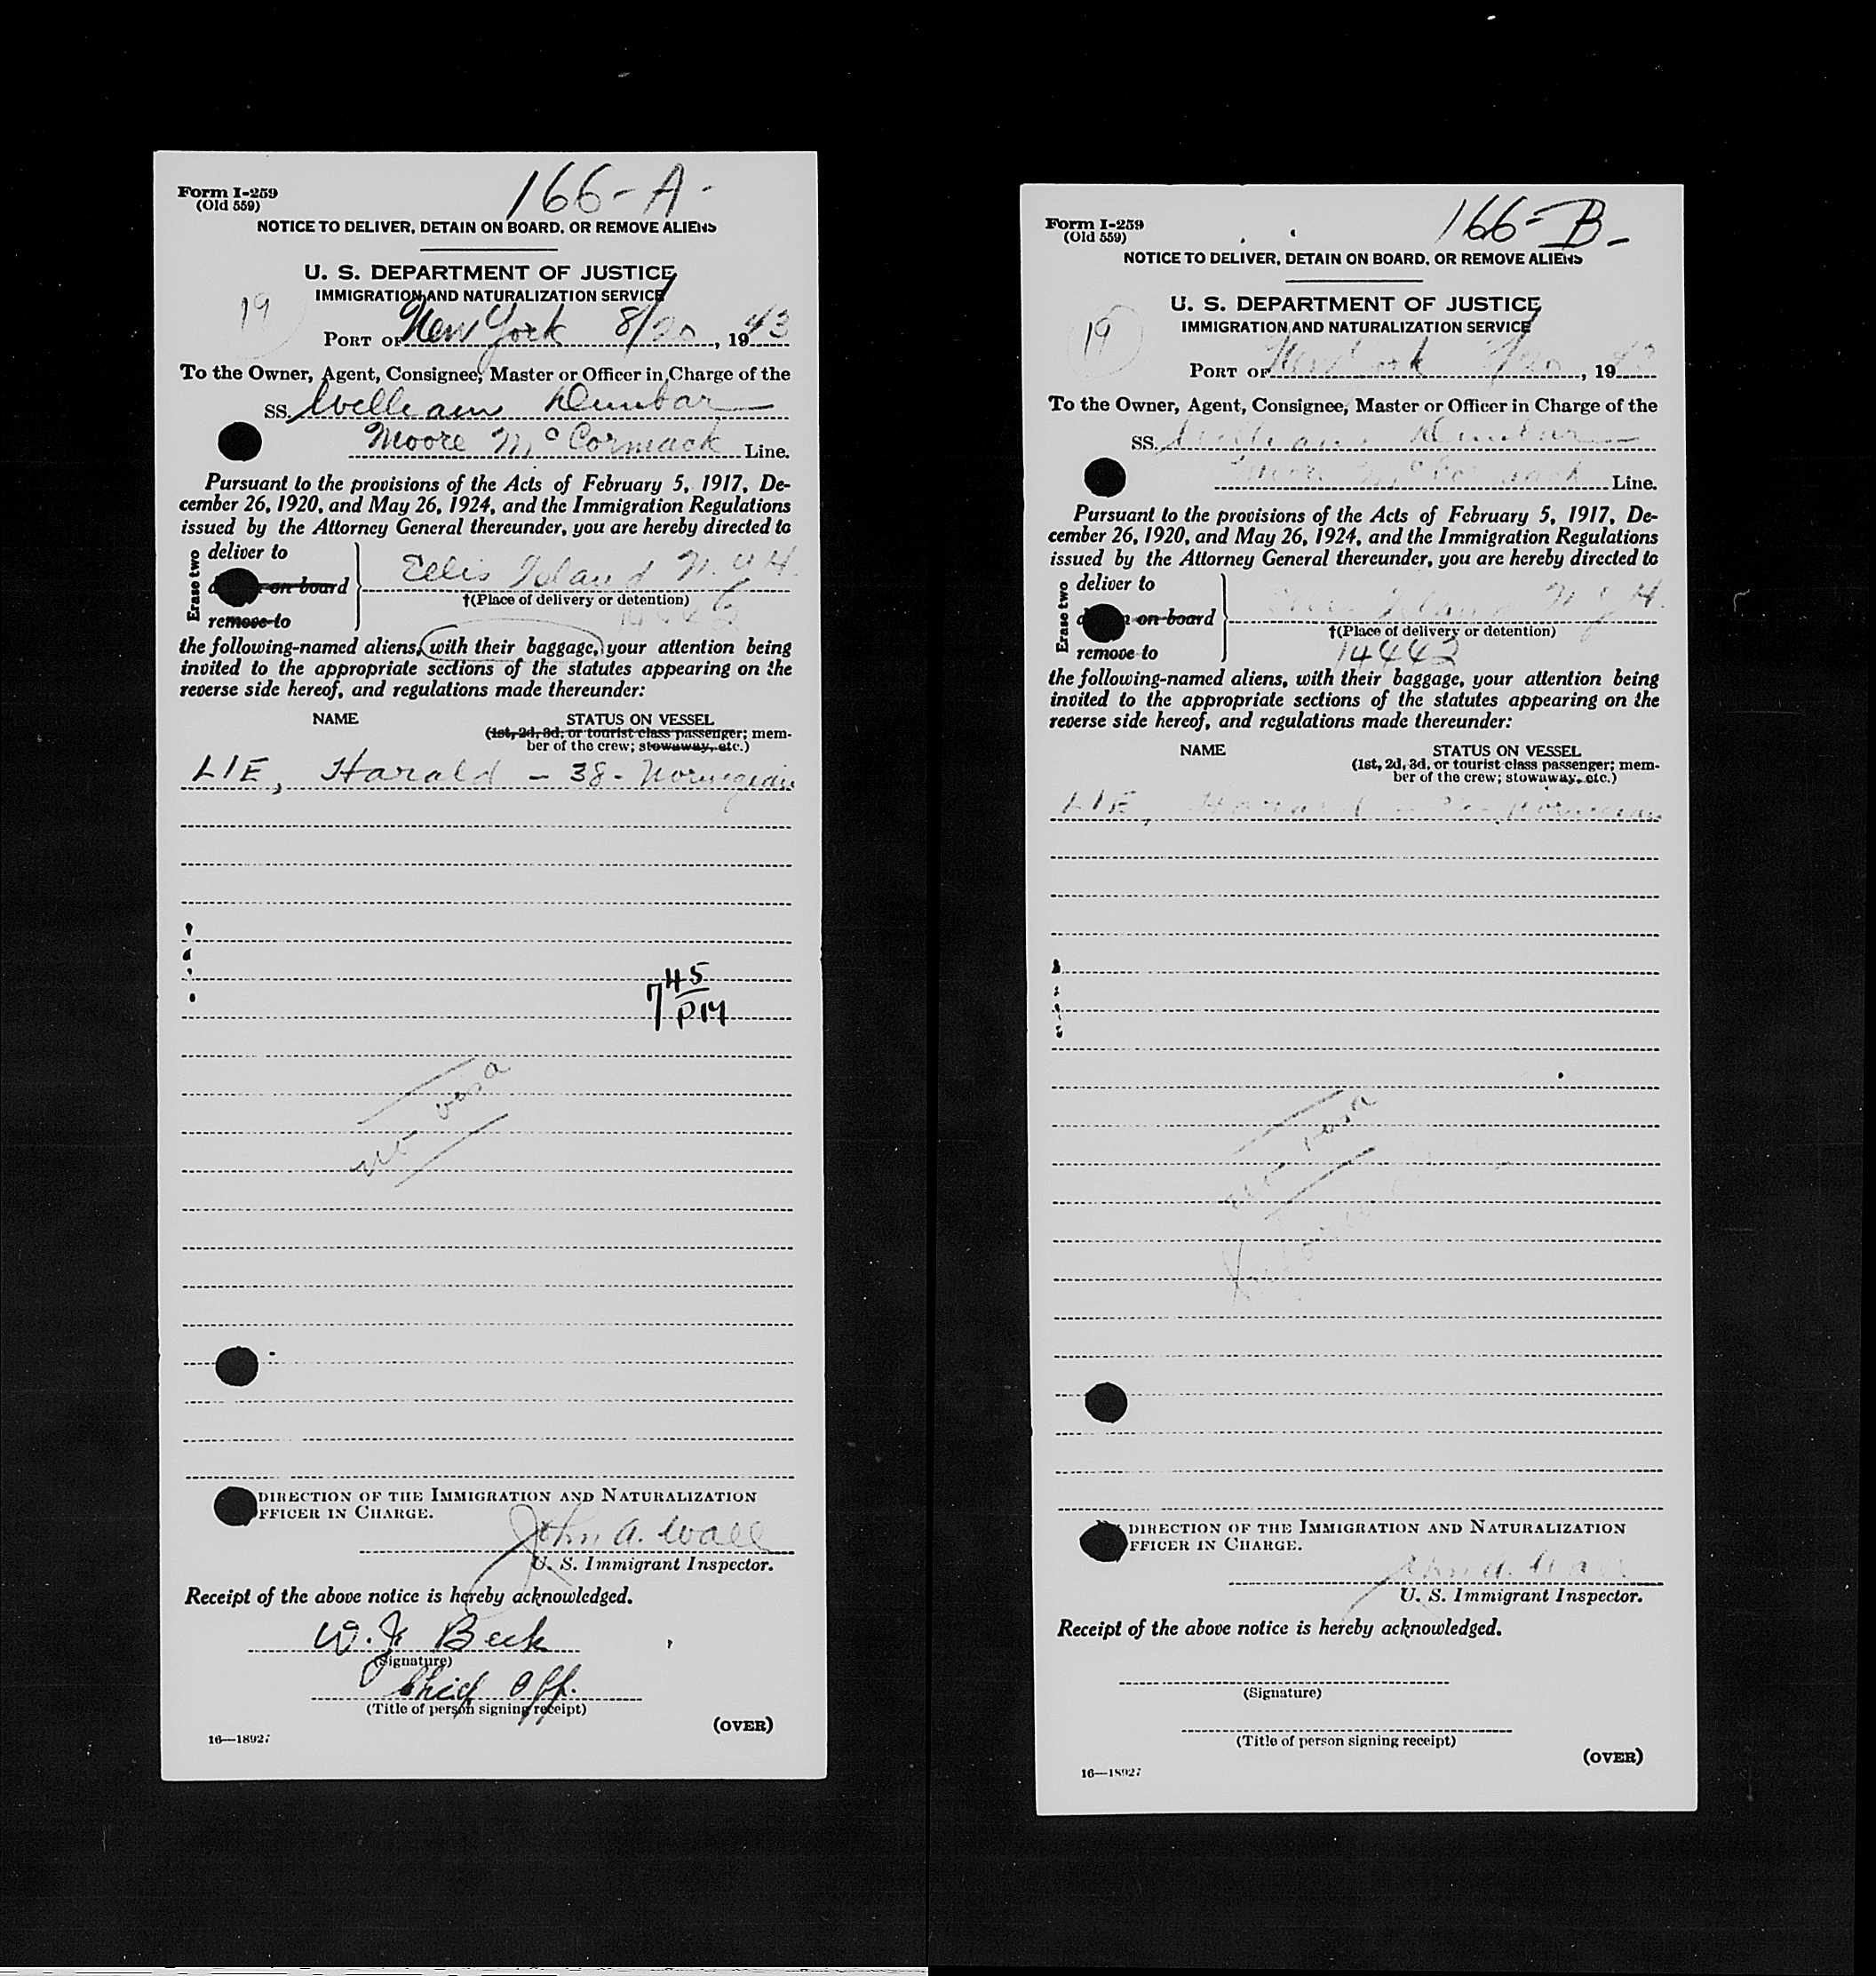 166-A-
Form I-259
(Old 559)
NOTICE TO DELIVER, DETAIN ON BOARD, OR REMOVE ALIENS
U. S. DEPARTMENT OF JUSTICE
IMMIGRATION AND NATURALIZATION SERVICE
19
PORT OF New York 8/20, 1943
To the Owner, Agent, Consignee, Master or Officer in Charge of the
SS. William Dunbar
Moore McCormack Line.
Pursuant to the provisions of the Acts of February 5, 1917, De-
cember 26, 1920, and May 26, 1924, and the Immigration Regulations
issued by the Attorney General thereunder, you are hereby directed to
Erase two
deliver to
on board
remove to
Ellis Island N.Y.H.
†(Place of delivery or detention)
the following-named aliens, with their baggage, your attention being
invited to the appropriate sections of the statutes appearing on the
reverse side hereof, and regulations made thereunder:
NAME STATUS ON VESSEL
(1st, 2d, 3d, or tourist class passenger; mem-
ber of the crew; stowaway, etc.)
LIE, Harald - 38 - Norwegian
7 45
PM
no visa
DIRECTION OF THE IMMIGRATION AND NATURALIZATION
FFICER IN CHARGE.
John A. Wall
U. S. Immigrant Inspector.
Receipt of the above notice is hereby acknowledged.
W. J. Beck
(Signature)
Chief Off.
(Title of person signing receipt)
(OVER)
16—18927
166-B-
Form I-259
(Old 559)
NOTICE TO DELIVER, DETAIN ON BOARD, OR REMOVE ALIENS
U. S. DEPARTMENT OF JUSTICE
IMMIGRATION AND NATURALIZATION SERVICE
19
PORT OF New York 8/20, 1943
To the Owner, Agent, Consignee, Master or Officer in Charge of the
SS. William Dunbar
Moore McCormack Line.
Pursuant to the provisions of the Acts of February 5, 1917, De-
cember 26, 1920, and May 26, 1924, and the Immigration Regulations
issued by the Attorney General thereunder, you are hereby directed to
Erase two
deliver to
on board
remove to
Ellis Island N.Y.H.
†(Place of delivery or detention)
14442
the following-named aliens, with their baggage, your attention being
invited to the appropriate sections of the statutes appearing on the
reverse side hereof, and regulations made thereunder:
NAME STATUS ON VESSEL
(1st, 2d, 3d, or tourist class passenger; mem-
ber of the crew; stowaway, etc.)
LIE, Harald - 38 - Norwegian
no visa
DIRECTION OF THE IMMIGRATION AND NATURALIZATION
FFICER IN CHARGE.
John A. Wall
U. S. Immigrant Inspector.
Receipt of the above notice is hereby acknowledged.
(Signature)
(Title of person signing receipt)
(OVER)
16—18927